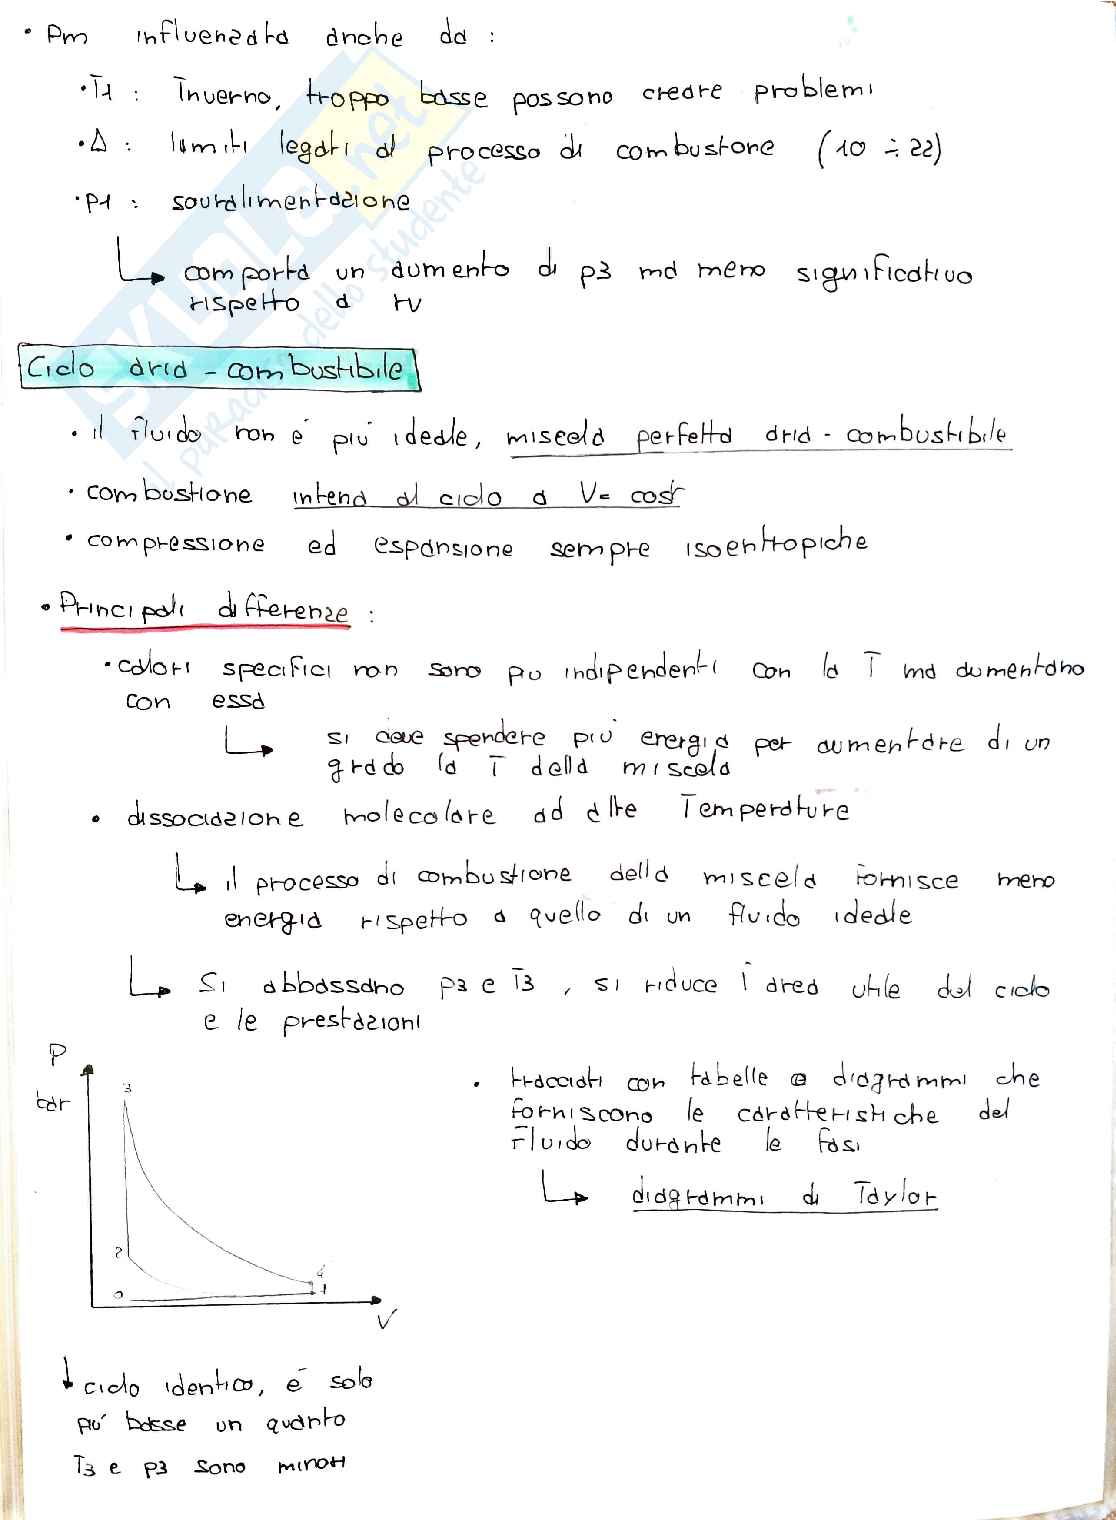 • Pm influenzata anche da :
• T1 : Inverno, troppo basse possono creare problemi
• Δ : limiti legati al processo di combustone (10 ÷ 22)
• p1 : sovralimentazione
↳ comporta un aumento di p3 ma meno significativo
rispetto a rv
Ciclo aria - combustibile
• il fluido non è più ideale, miscela perfetta aria - combustibile
• combustione interna al ciclo a V= cost
• compressione ed espansione sempre isoentropiche
• Principali differenze :
• calori specifici non sono più indipendenti con la T ma aumentano
con essa
↳ si deve spendere più energia per aumentare di un
grado la T della miscela
• dissociazione molecolare ad alte Temperature
↳ il processo di combustione della miscela fornisce meno
energia rispetto a quello di un fluido ideale
↳ Si abbassano p3 e T3 , si riduce l'area utile del ciclo
e le prestazioni
P
bar
3
2
0
4
1
V
• tracciati con tabelle e diagrammi che
forniscono le caratteristiche del
Fluido durante le fasi
↳ diagrammi di Taylor
↓ ciclo identico, è solo
più basse un quanto
T3 e p3 sono minori
SKUOLA.net
il paradiso dello studente